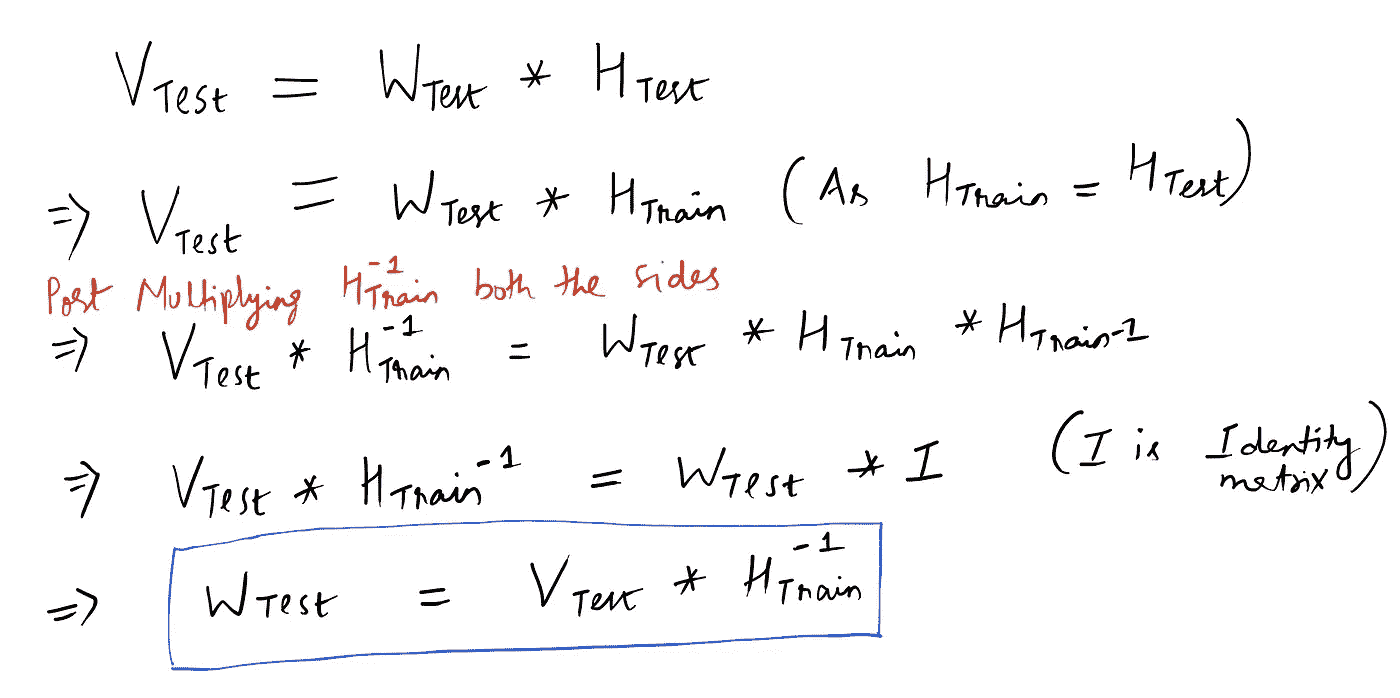 V_Test = W_Test * H_Test
⇒ V_Test = W_Test * H_Train (As H_Train = H_Test)
Post Multiplying H_Train^-1 both the sides
⇒ V_Test * H_Train^-1 = W_Test * H_Train * H_Train-1
⇒ V_Test * H_Train^-1 = W_Test * I (I is Identity matrix)
⇒ W_Test = V_Test * H_Train^-1